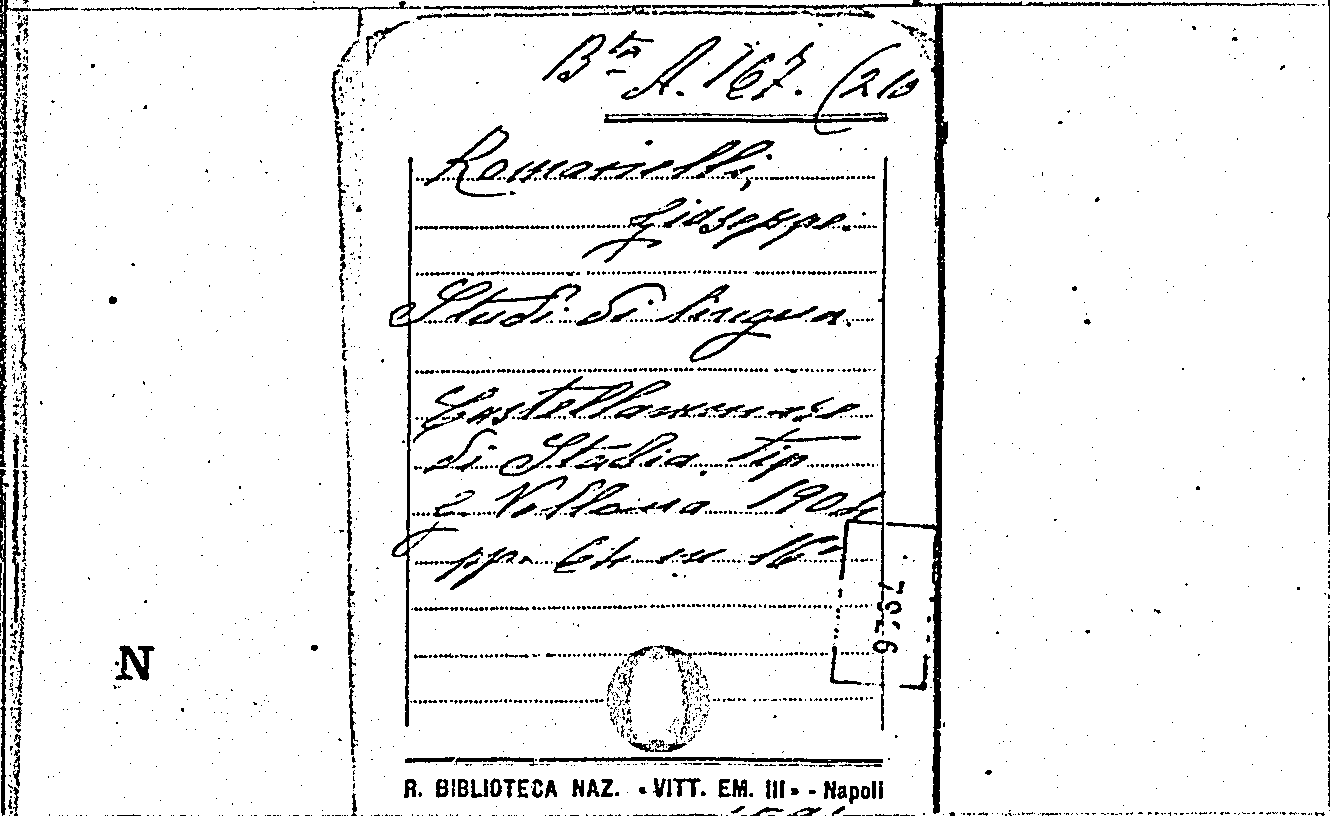 Bta A. 767. (210
Romanielli,
Giuseppe.
Studi di lingua.
Castellammare
di Stabia. tip
e. Vollona 1904
pp. 64 in 16°
N
R. BIBLIOTECA NAZ. «VITT. EM. III» - Napoli